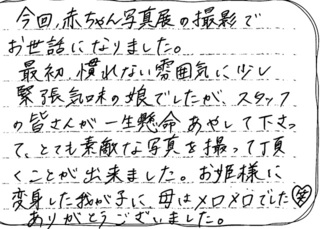 今回、赤ちゃん写真展の撮影で
お世話になりました。
最初、慣れない雰囲気に少し
緊張気味の娘でしたが、スタッフ
の皆さんが一生懸命あやして下さっ
て、とても素敵な写真を撮って頂
くことが出来ました。お姫様に
変身した我が子に、母はメロメロでした(笑)
ありがとうございました。